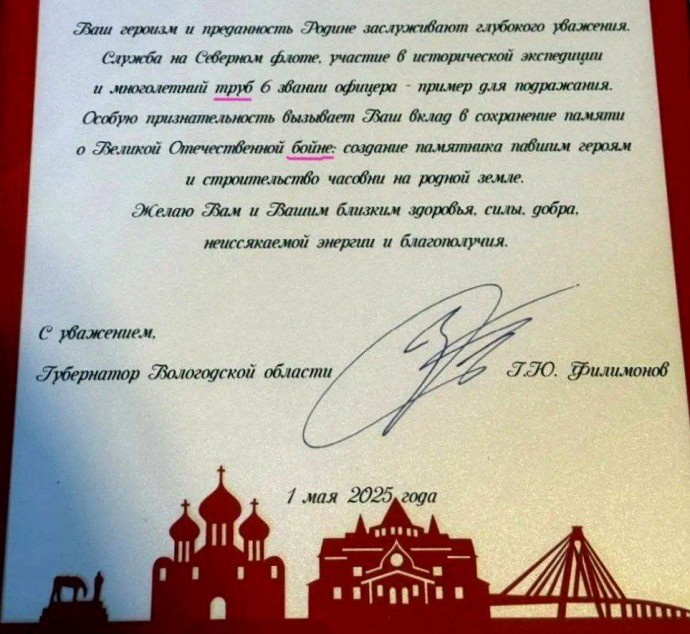 Ваш героизм и преданность Родине заслуживают глубокого уважения.
Служба на Северном флоте, участие в исторической экспедиции
и многолетний труб б звании офицера - пример для подражания.
Особую признательность вызывает Ваш вклад в сохранение памяти
о Великой Отечественной бойне: создание памятника павшим героям
и строительство часовни на родной земле.
Желаю Вам и Вашим близким здоровья, силы, добра,
неиссякаемой энергии и благополучия.
С уважением,
Губернатор Вологодской области Г.Ю. Филимонов
1 мая 2025 года